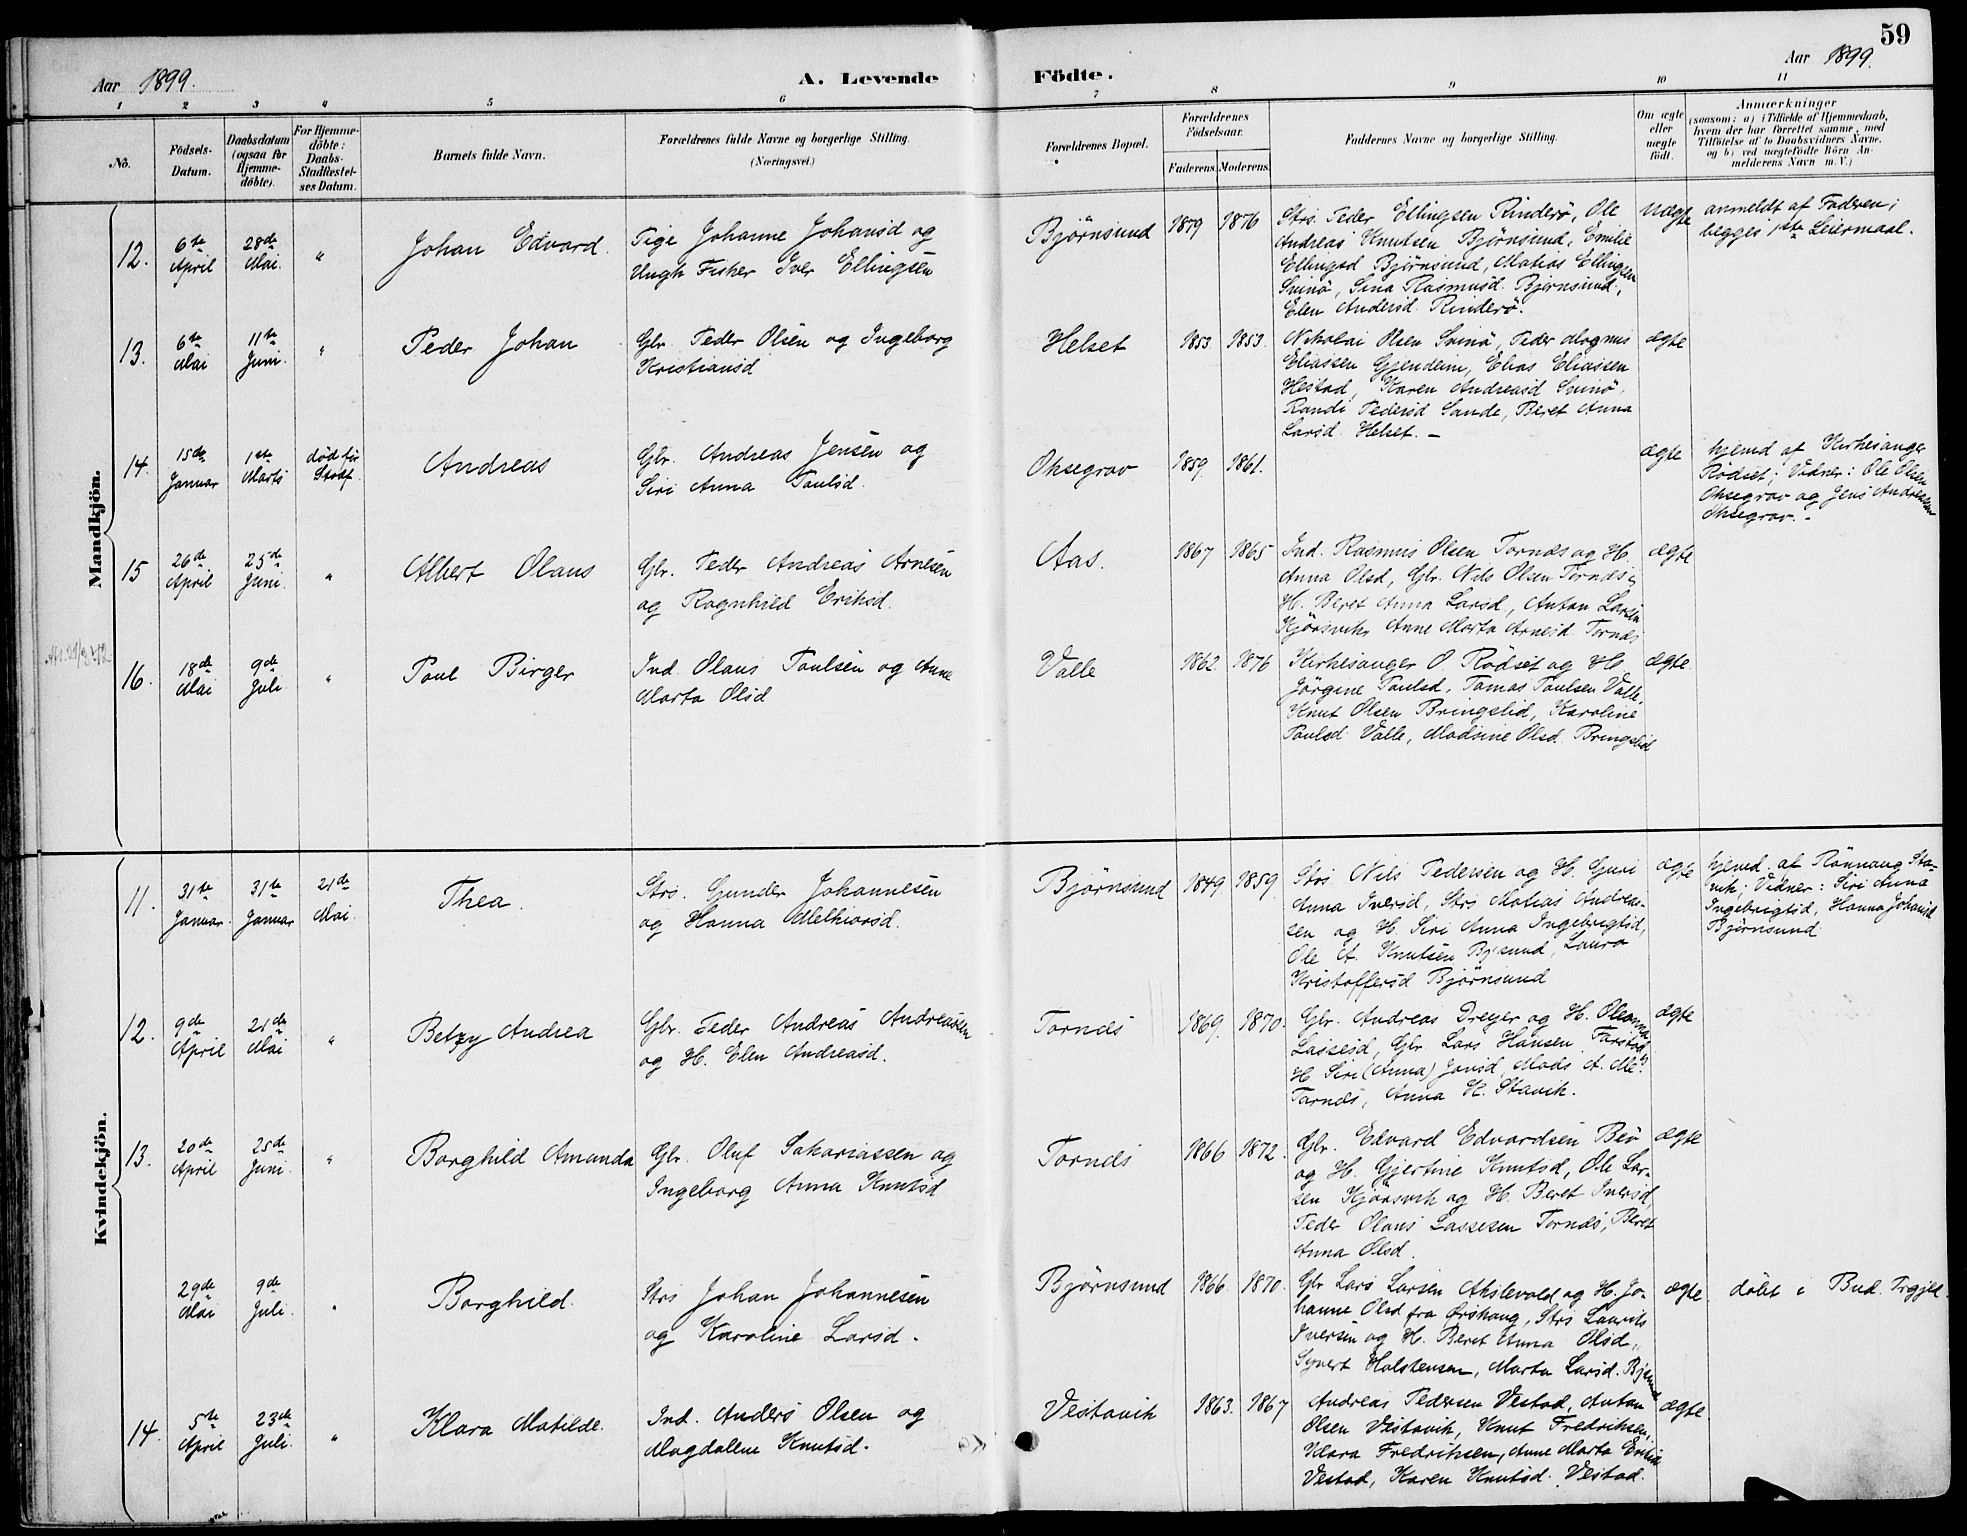 59
Aar 1899.
A. Levende
Födte.
Aar 1899.
1 2 3 4 5 6 7 8 9 10 11
No.
Födsels-
Datum.
Daabsdatum
(ogsaa for
Hjemme-
döbte).
For Hjemme-
döbte:
Daabs-
Stadfæstel-
ses Datum.
Barnets fulde Navn.
Forældrenes fulde Navne og borgerlige Stilling.
(Næringsvei.)
Forældrenes Bopæl.
Forældrenes
Födselsaar.
Faderens. Moderens.
Faddernes Navne og borgerlige Stilling.
Om ægte
eller
uægte
födt.
Anmærkninger
(saasom: a) i Tilfælde af Hjemmedaab,
hvem der har forrettet samme, med
Tilföielse af to Daabsvidners Navne.
og b) ved uægtefödte Börn An-
melderens Navn m. V.)
Mandkjön.
12.
6te
April
28de
Mai.
"
Johan Edvard.
Pige Johanne Johansd og
Ungk. Fisker Iver Ellingsen
Björnsund
1879
1876
Strs. Peder Ellingsen Rinderö, Ole
Andreas Knutsen Björnsund, Emilie
Ellingsd Björnsund, Matias Ellingsen
Svinö, Sina Rasmusd. Björnsund,
Elen Andersd. Rinderö.
Uægte
anmeldt af Faderen;
begges 1ste Leiermaal.
13.
6te
Mai
11te
Juni.
"
Peder Johan
Gbr. Peder Olsen og Ingeborg
Kristiansd
Helset
1853
1853.
Nikolai Olsen Svinö, Peder Magnus
Eliassen Gjendem, Elias Eliassen
Hestad, Karen Andreasd Svinö,
Randi Pedersd Sande, Beret Anna
Larsd. Helset. -
ægte
14.
15de
Januar
1ste
Marts
död för
Stadf.
Andreas
Gbr. Andreas Jensen og
Siri Anna Paulsd.
Oksegrav
1859.
1861.
ægte
hjemd af Kirkesanger
Rödset; Vidner: Ole Olsen
Oksegrav og Jens Andresen
Oksegrav. -
15
26de
April
25de
Juni.
"
Albert Olaus
Gbr. Peder Andreas Arnesen
og Ragnhild Eriksd.
Aas.
1867
1865
Ind. Rasmus Olsen Tornæs og H.
Anna Olsd, Gbr. Nils Olsen Tornæs og
H. Beret Anna Larsd, Anton Larsen
Kjörsvik, Anne Marta Arnesd. Tornæs
ægte
16.
18de
Mai
9de
Juli
"
Paul Birger
Ind. Olaus Paulsen og Anne
Marta Olsd
Valle
1862
1876
Kirkesanger O. Rödset og H.
Jörgine Paulsd, Tomas Paulsen Valle,
Knut Olsen Bringslid, Karoline
Paulsd Valle, Madsine Olsd. Bringslid
ægte.
Kvindekjön.
11.
31te
Januar.
31te
Januar
21de
Mai.
Thea.
Strs. Gunder Johannesen
og Hanna Melkiorsd.
Björnsund
1849
1859.
Strs. Nils Pedersen og H. Guri
Anna Iversd, Strs Matias Andreas-
sen og H. Siri Anna Ingebrigtsd,
Ole A. Knutsen Bj'sund, Laura
Kristoffersd Björnsund
ægte
hjemd. af Rönnaug Sta-
vik; Vidner: Siri Anna
Ingebrigtsd, Hanna Johansd
Björnsund
12.
9de
April
21de
Mai
"
Betzy Andrea
Gbr. Peder Andreas Andreassen
og H. Elen Andreasd.
Tornæs
1869.
1870.
Gbr. Andreas Dreyer og H. Oleanna
Lassesd, Gbr. Lars Hansen Farstad og
H Siri (Anna) Jonsd, Mads A. Me.
Tornæs, Anna K. Stavik.
ægte
13.
20de
April
25de
Juni.
"
Borghild Amanda
Gbr. Oluf Sakariassen og
Ingeborg Anna Knutsd
Tornæs
1866
1872.
Gbr. Edvard Edvardsen Beö
og H. Gjertine Knutsd, Ole Lar-
sen Kjörsvik og H. Beret Iversd,
Peder Olaus Lassesen Tornæs, Beret
Anna Olsd.
ægte
29de
Mai
9de
Juli.
"
Borghild.
Strs Johan Johannesen
og Karoline Larsd.
Björnsund
1866.
1870.
Gbr Lars Larsen Akslevold og H. Jo-
hanne Olsd fra Örskaug, Strs Laurits
Iversen og H. Beret Anna Olsd,
Syvert Halstensen, Marta Larsd. Bjsund
ægte.
döbt i Bud Prgjld.
14.
5te
April
23de
Juli.
"
Klara Matilde.
Ind. Anders Olsen og
Magdalene Knutsd.
Vestavik
1863.
1867
Andreas Pedersen Vestad, Anton
Olsen Vestavik, Knut Fredriksen,
Klara Fredriksen, Anne Marta Eriksd
Vestad, Karen Knutsd. Vestad.
ægte.